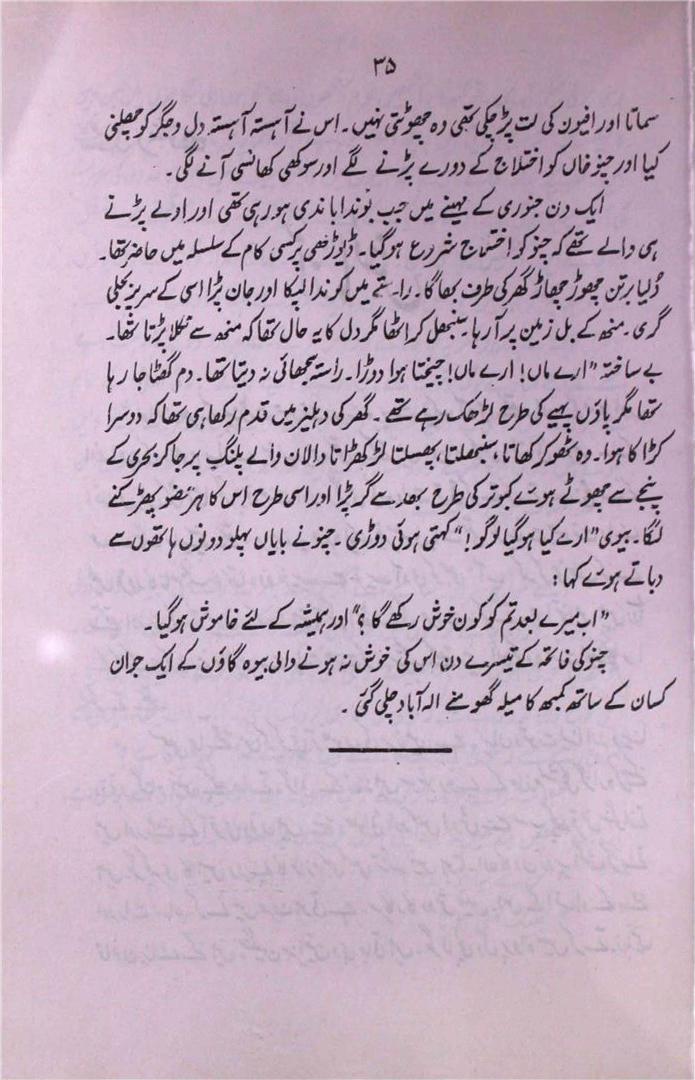 ۳۵
سماتا اور افیون کی لت پڑ چکی تھی وہ چھوٹتی نہیں۔ اس نے آہستہ آہستہ دل و جگر کو چھلنی
کیا اور چنو خاں کو اختلاج کے دورے پڑنے لگے اور سوکھی کھانسی آنے لگی۔
ایک دن جنوری کے مہینے میں جب بوندا باندی ہو رہی تھی اور اولے پڑنے
ہی والے تھے کہ چنو کو اختلاج شروع ہو گیا۔ ڈیوڑھی پر کسی کام کے سلسلہ میں حاضر تھا۔
ڈلیا برتن چھوڑ چھاڑ گھر کی طرف بھاگا۔ راستے میں کوندا لپکا اور جان پڑا اسی کے سر پر بجلی
گری۔ منھ کے بل زمین پر آ رہا۔ سنبھل کر اٹھا مگر دل کا یہ حال تھا کہ منھ سے نکلا پڑتا تھا۔
بے ساختہ "ارے ماں! ارے ماں! چیختا ہوا دوڑا۔ راستہ سجھائی نہ دیتا تھا۔ دم گھٹا جا رہا
تھا مگر پاؤں پہیے کی طرح لڑھک رہے تھے۔ گھر کی دہلیز میں قدم رکھا ہی تھا کہ دوسرا
کڑاکا ہوا۔ وہ ٹھوکر کھاتا، سنبھلتا، پھسلتا لڑکھڑاتا دالان والے پلنگ پر جا کر بحری کے
پنجے سے چھوٹے ہوئے کبوتر کی طرح بھد سے گر پڑا اور اسی طرح اس کا ہر عضو پھڑکنے
لگا۔ بیوی "ارے کیا ہو گیا لوگو!" کہتی ہوئی دوڑی۔ چنو نے بایاں پہلو دونوں ہاتھوں سے
دباتے ہوئے کہا:
"اب میرے بعد تم کو کون خوش رکھے گا؟" اور ہمیشہ کے لئے خاموش ہو گیا۔
چنو کی فاتحہ کے تیسرے دن اس کی خوش نہ ہونے والی بیوہ گاؤں کے ایک جوان
کسان کے ساتھ کمبھ کا میلہ گھومنے الہ آباد چلی گئی۔